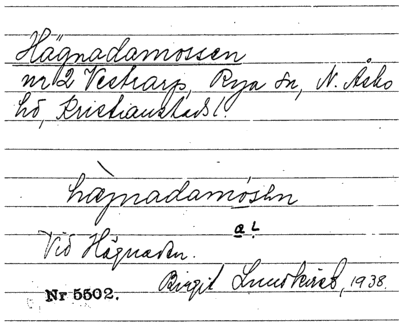 Hägnadamossen
nr 2 Vestrarp, Rya sn, N. Åsbo
hd, Kristianstads l.
hægnadamósen
a L
Vid Hägnaden.
Birgit Lundkvist, 1938.
Nr 5502.